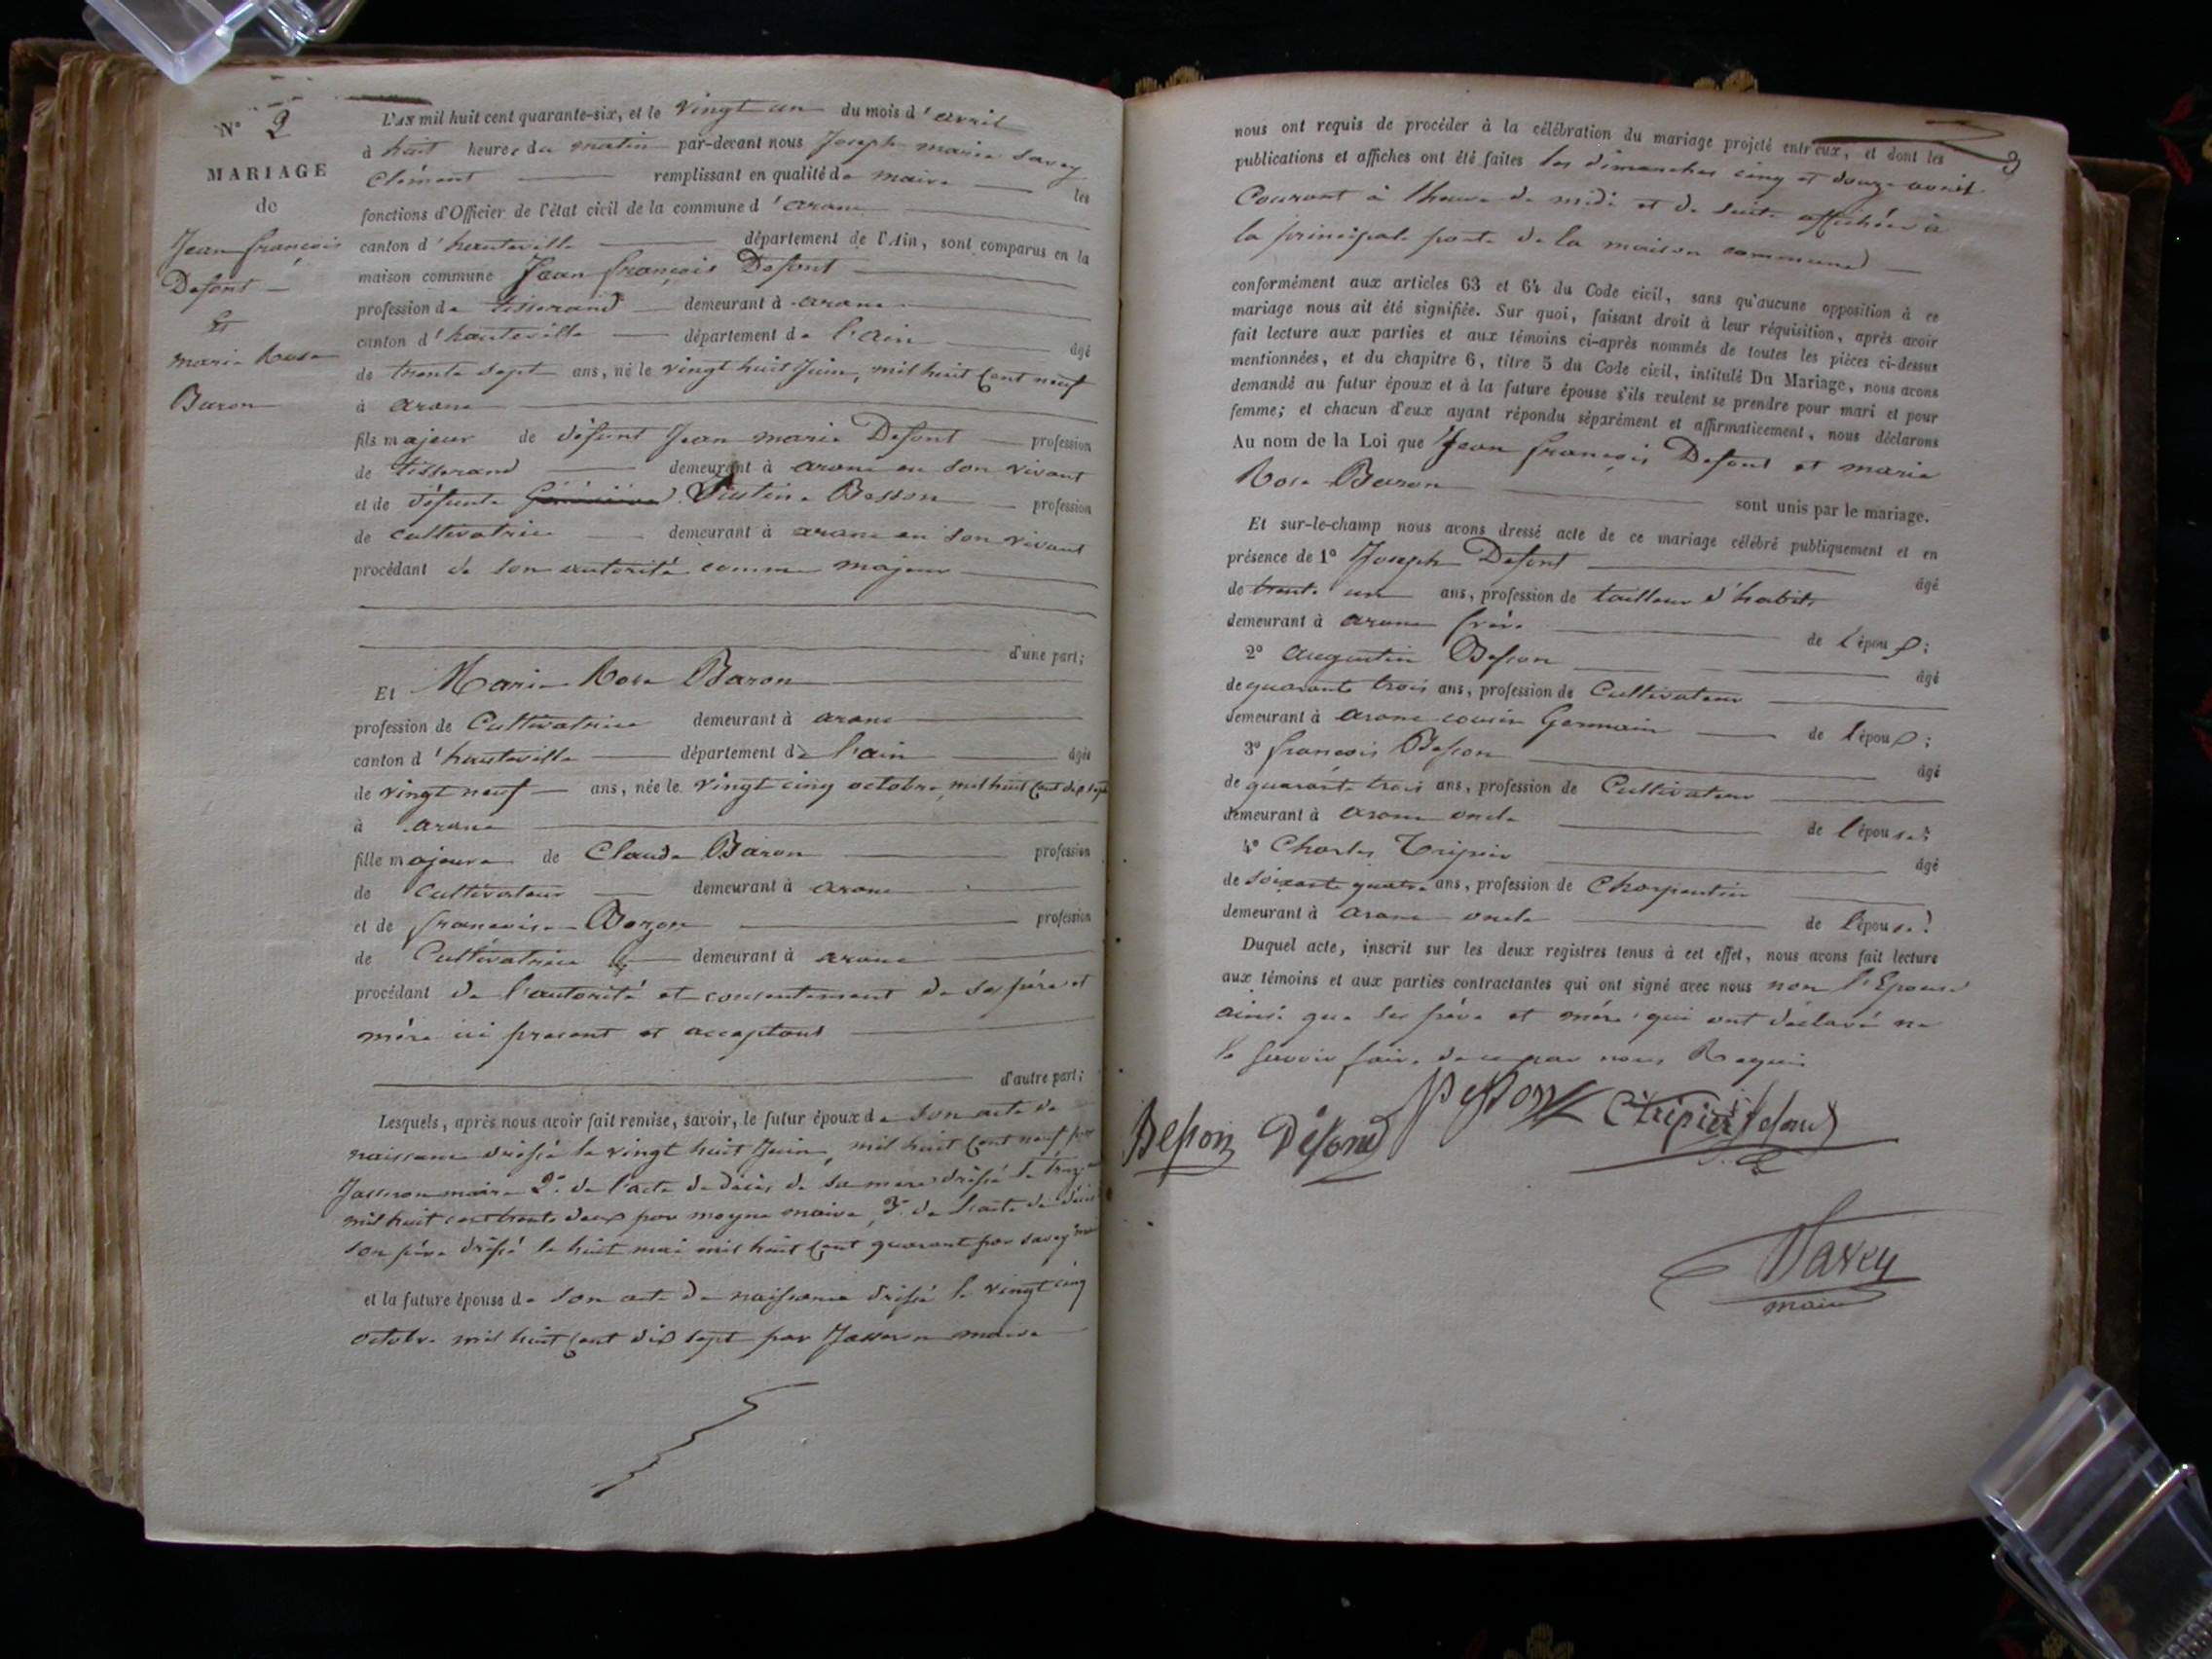 N° 2
MARIAGE
de
Jean françois
Defont
Et
marie Rose
Baron
L'AN mil huit cent quarante-six, et le vingt un du mois d'avril
à huit heures du matin par-devant nous Joseph marie Savey
Clément remplissant en qualité de maire les
fonctions d'Officier de l'état civil de la commune d'aranc
canton d'hauteville département de l'Ain, sont comparus en la
maison commune Jean françois Defont
profession de tisserand demeurant à aranc
canton d'hauteville département de l'ain âgé
de trente sept ans, né le vingt huit Juin, mil huit Cent neuf
à aranc
fils majeur de défunt Jean marie Defont profession
de tisserand demeurant à aranc en son vivant
et de défunte Justine Besson profession
de cultivatrice demeurant à aranc en son vivant
procédant de son autorité comme majeur
d'une part;
Et Marie Rose Baron
profession de Cultivatrice demeurant à aranc
canton d'hauteville département de l'ain âgée
de vingt neuf ans, née le vingt cinq octobre, mil huit Cent dix sept
à aranc
fille majeure de Claude Baron profession
de Cultivateur demeurant à aranc
et de francoise Bozon profession
de Cultivatrice demeurant à aranc
procédant de l'autorité et consentement de ses père et
mère ici present et acceptant
d'autre part;
Lesquels, après nous avoir fait remise, savoir, le futur époux de son acte de
naissance dréssé le vingt huit Juin, mil huit Cent neuf par
Jasseron maire 2° de l'acte de décès de sa mere dréssé le treize
mil huit cent trente deux par moyne maire, 3° de l'acte de décès
son père dréssé le huit mai mil huit Cent quarant par savey
et la future épouse de son acte de naissance dréssé le vingt cinq
octobre mil huit Cent dix sept par Jasseron maire
nous ont requis de procéder à la célébration du mariage projeté entr'eux, et dont les
publications et affiches ont été faites les dimanches cinq et douze avril
Courant à l'heure de midi et de suite affichées à
la principale porte de la maison commune
conformément aux articles 63 et 64 du Code civil, sans qu'aucune opposition à ce
mariage nous ait été signifiée. Sur quoi, faisant droit à leur réquisition, après avoir
fait lecture aux parties et aux témoins ci-après nommés de toutes les pièces ci-dessus
mentionnées, et du chapitre 6, titre 5 du Code civil, intitulé Du Mariage, nous avons
demandé au futur époux et à la future épouse s'ils veulent se prendre pour mari et pour
femme; et chacun d'eux ayant répondu séparément et affirmativement, nous déclarons
Au nom de la Loi que Jean françois Defont et marie
Rose Baron sont unis par le mariage.
Et sur-le-champ nous avons dressé acte de ce mariage célébré publiquement et en
présence de 1° Joseph Defont âgé
de trente un ans, profession de tailleur d'habits
demeurant à aranc frère de l'époux;
2° augustin Besson âgé
de quarante trois ans, profession de Cultivateur
demeurant à aranc cousin Germain de l'époux;
3° françois Besson âgé
de quarante trois ans, profession de Cultivateur
demeurant à aranc oncle de l'épouse;
4° Charles Tripier âgé
de soixante quatre ans, profession de Charpentier
demeurant à aranc oncle de l'épouse.
Duquel acte, inscrit sur les deux registres tenus à cet effet, nous avons fait lecture
aux témoins et aux parties contractantes qui ont signé avec nous non l'Epouse
ainsi que ses père et mère qui ont déclaré ne
le savoir faire de ce par nous Requis
Besson Défond Besson C tripier Defond
Savey
maire